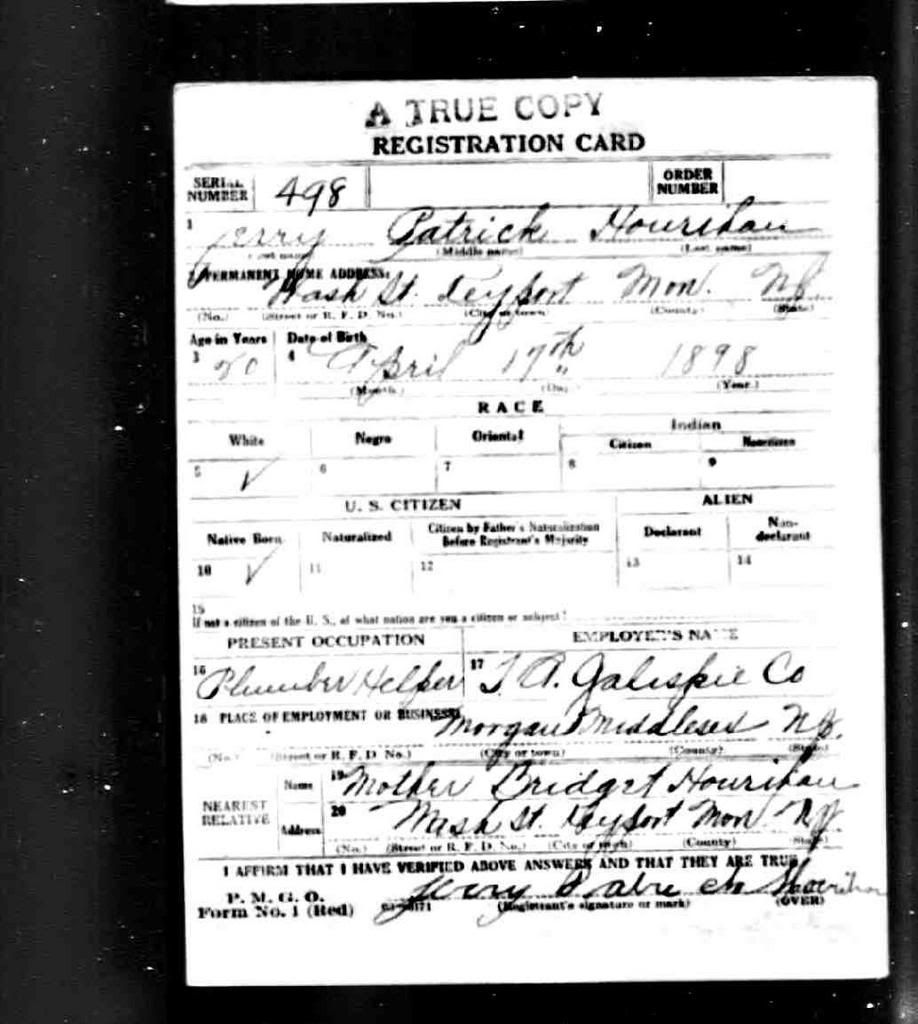 A TRUE COPY
REGISTRATION CARD
SERIAL NUMBER 498 ORDER NUMBER
1 Jerry Patrick Hourihan
(Middle name) (Last name)
PERMANENT HOME ADDRESS:
Wash St. Keyport Mon. NJ
(No.) (Street or R. F. D. No.) (City or town) (County) (State)
Age in Years Date of Birth
3 20 4 April 17th 1898
(Month) (Day) (Year.)
RACE
White Negro Oriental Indian
Citizen Noncitizen
5 ✓ 6 7 8 9
U. S. CITIZEN ALIEN
Native Born Naturalized Citizen by Father's Naturalization Before Registrant's Majority Declarant Non-declarant
10 ✓ 11 12 13 14
15
If not a citizen of the U. S., of what nation are you a citizen or subject?
PRESENT OCCUPATION EMPLOYER'S NAME
16 Plumber Helper 17 T. A. Galispie Co
18 PLACE OF EMPLOYMENT OR BUSINESS:
Morgan Middlesex NJ.
(No.) (Street or R. F. D. No.) (City or town) (County) (State)
NEAREST RELATIVE Name 19 Mother Bridget Hourihan
Address 20 Wash St. Keyport Mon NJ
(No.) (Street or R. F. D. No.) (City or town) (County) (State)
I AFFIRM THAT I HAVE VERIFIED ABOVE ANSWERS AND THAT THEY ARE TRUE
P. M. G. O.
Form No. 1 (Red) Jerry Patrick Hourihan
(Registrant's signature or mark) (OVER)